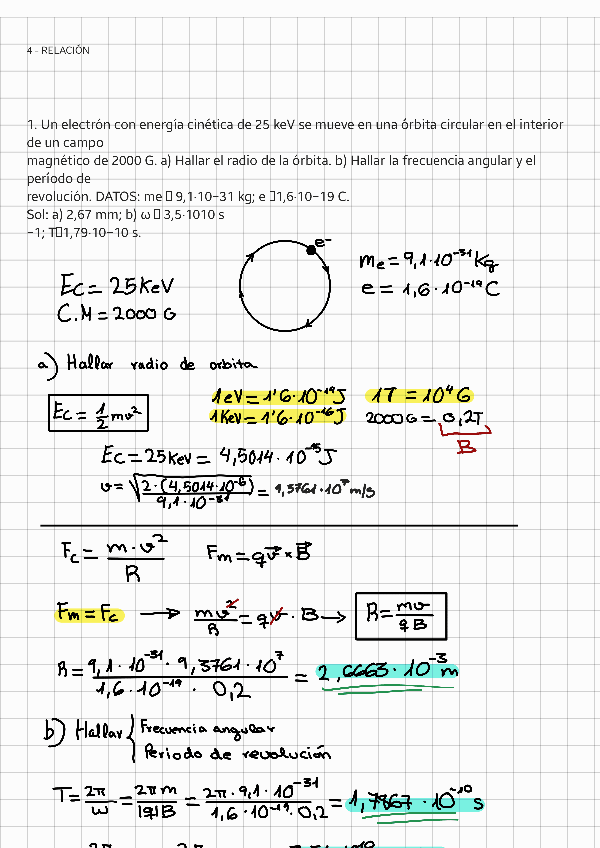 4 - RELACIÓN
1. Un electrón con energía cinética de 25 keV se mueve en una órbita circular en el interior
de un campo
magnético de 2000 G. a) Hallar el radio de la órbita. b) Hallar la frecuencia angular y el
período de
revolución. DATOS: me 9,1·10−31 kg; e 1,6·10−19 C.
Sol: a) 2,67 mm; b) ω 3,5·1010 s
−1; T 1,79·10−10 s.
e⁻
me = 9,1·10⁻³¹ Kg
Ec = 25 KeV
e = 1,6·10⁻¹⁹ C
C.M = 2000 G
a) Hallar radio de orbita
1eV = 1'6·10⁻¹⁹ J 1T = 10⁴ G
Ec = 1/2 mv² 1KeV = 1'6·10⁻¹⁶ J 2000 G = 0,2T
B
Ec = 25 Kev = 4,5014·10⁻¹⁵ J
v = √(2·(4,5014·10⁻⁶)/9,1·10⁻³¹) = 9,3761·10⁷ m/s
Fc = m·v²/R Fm = qv⃗ × B⃗
Fm = Fc → mv²/R = qv·B → R = mv/qB
R = 9,1·10⁻³¹·9,3761·10⁷/1,6·10⁻¹⁹·0,2 = 2,6663·10⁻³ m
b) Hallar { Frecuencia angular
Periodo de revolución
T = 2π/ω = 2πm/|q|B = 2π·9,1·10⁻³¹/1,6·10⁻¹⁹·0,2 = 1,7867·10⁻¹⁰ s